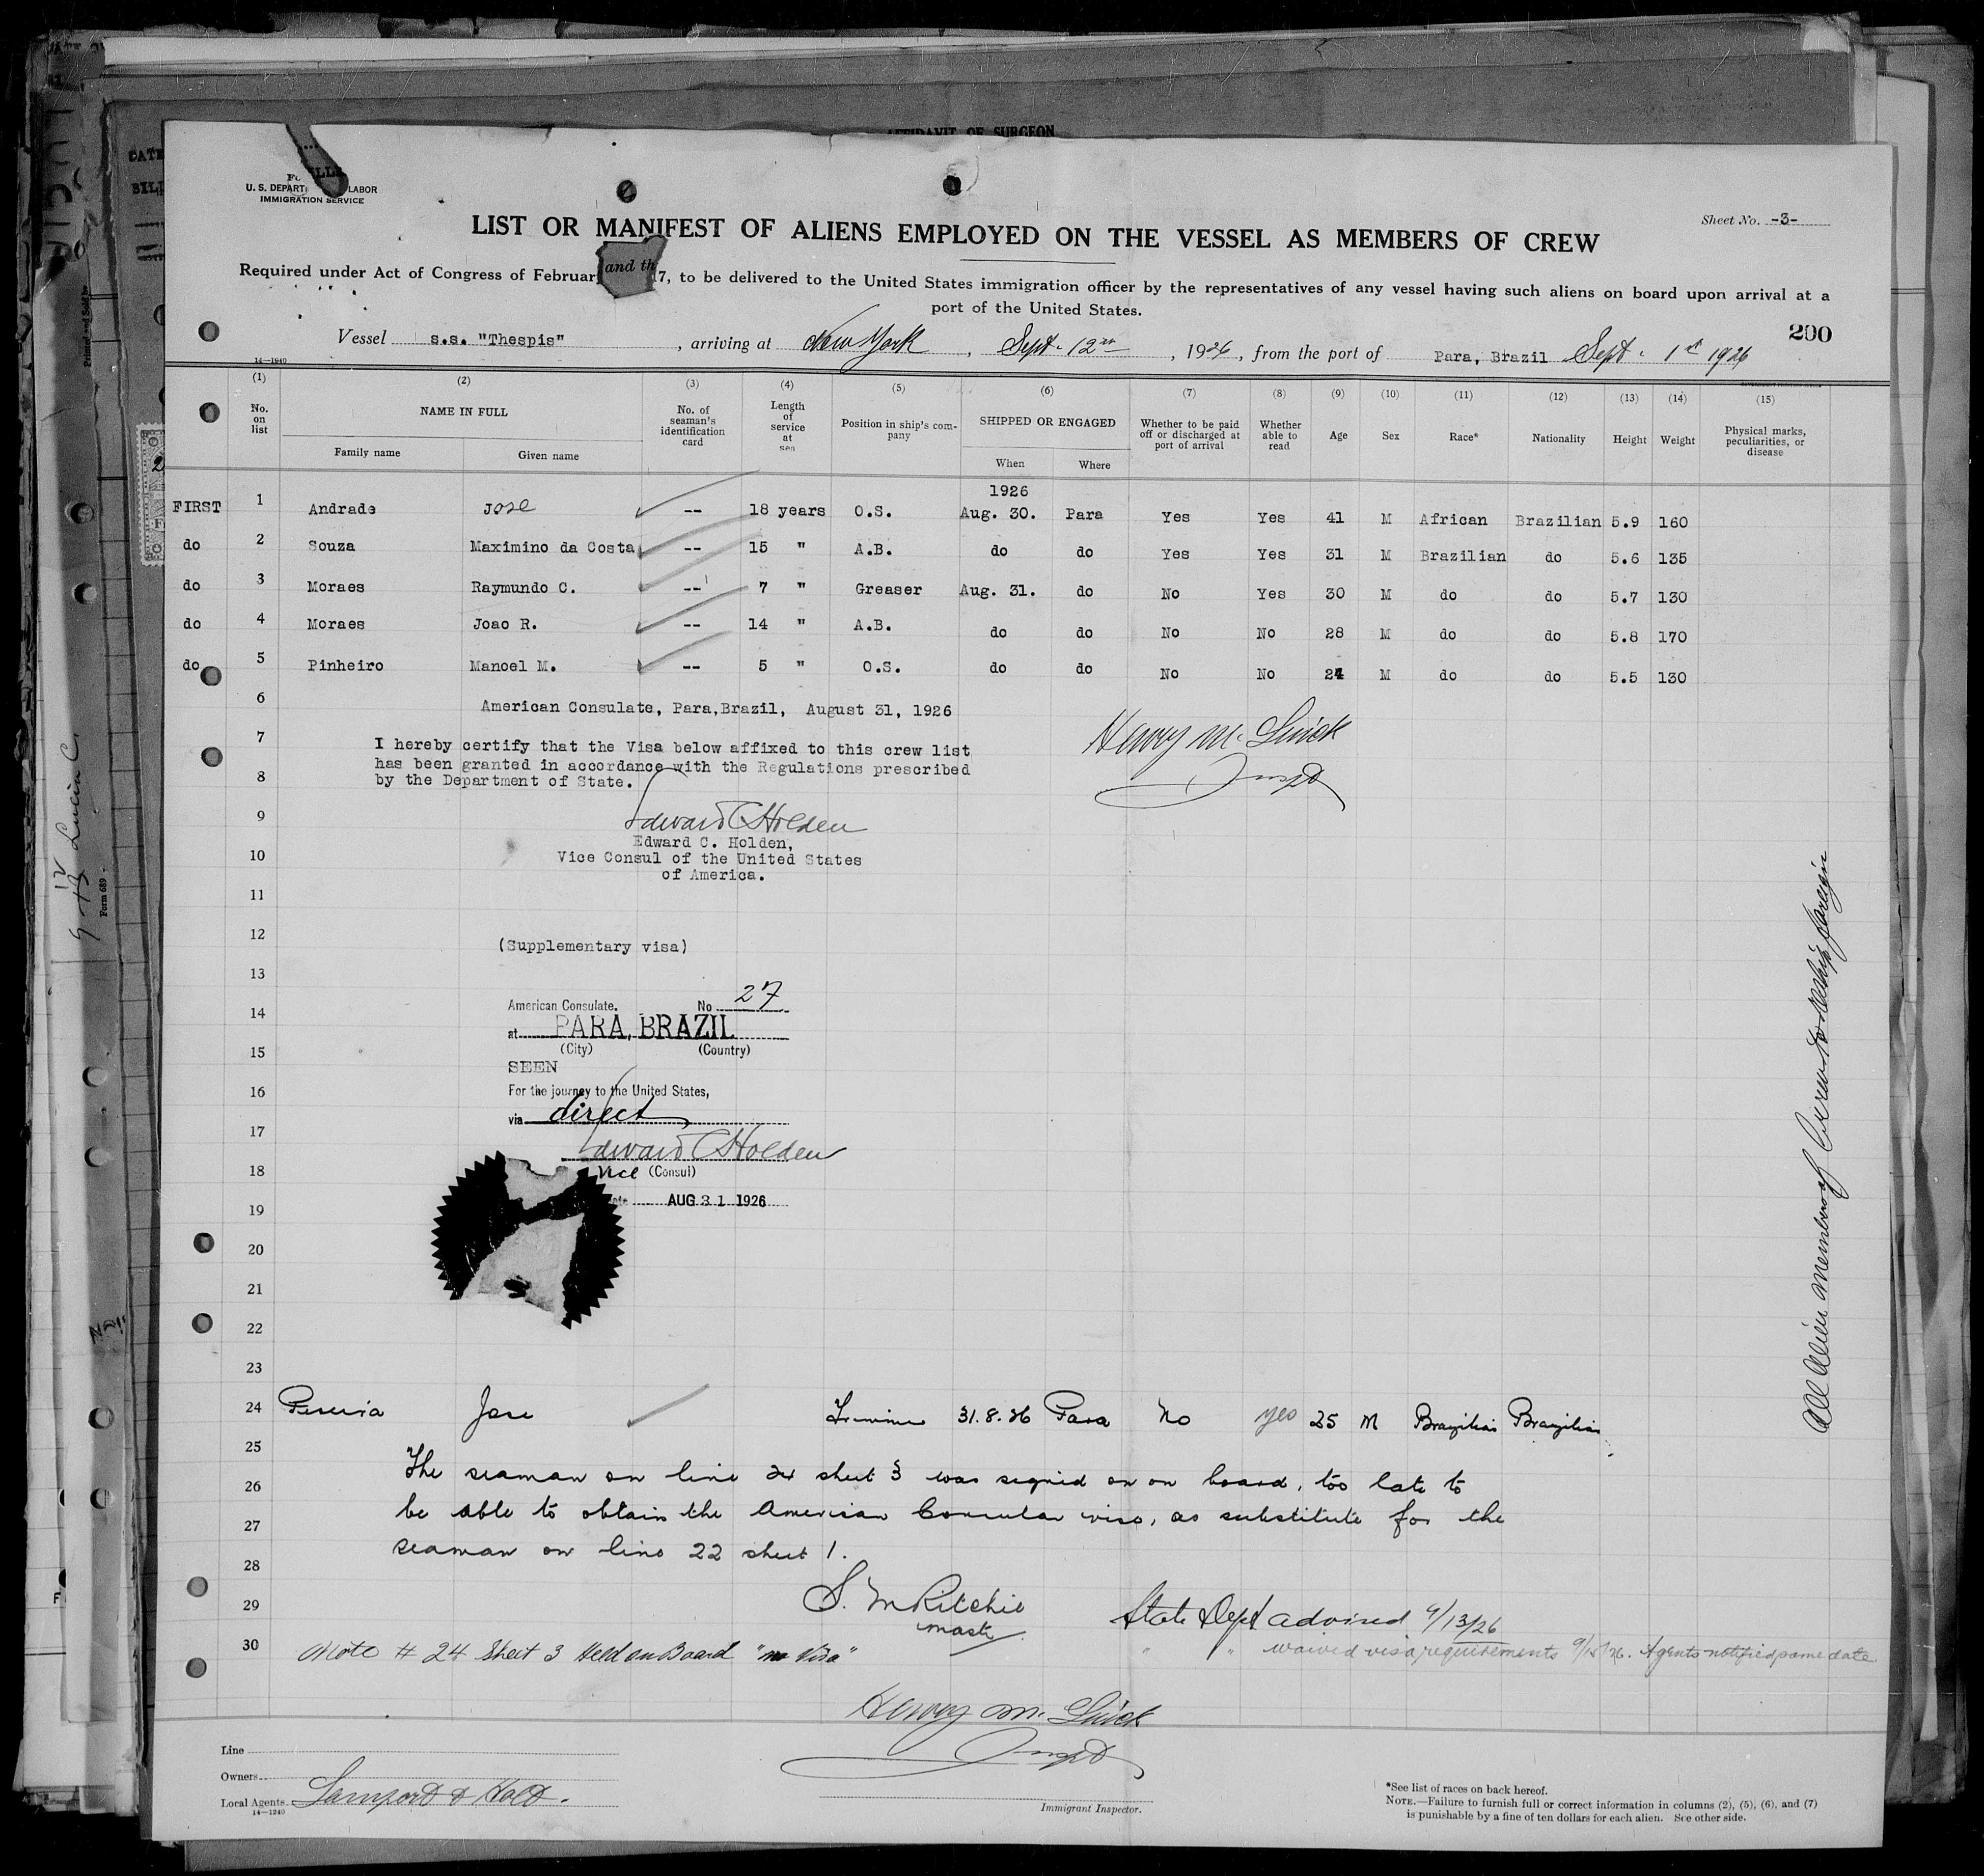 AFFIDAVIT OF SURGEON
U. S. DEPARTMENT LABOR
IMMIGRATION SERVICE
Sheet No. -3-
LIST OR MANIFEST OF ALIENS EMPLOYED ON THE VESSEL AS MEMBERS OF CREW
Required under Act of Congress of Februar and th 7, to be delivered to the United States immigration officer by the representatives of any vessel having such aliens on board upon arrival at a
port of the United States.
200
Vessel s.s. "Thespis", arriving at New York, Sept. 12th, 1926, from the port of Para, Brazil Sept. 1st 1926
14—1240
(1) (2) (3) (4) (5) (6) (7) (8) (9) (10) (11) (12) (13) (14) (15)
No. on list NAME IN FULL No. of seaman's identification card Length of service at sea Position in ship's company SHIPPED OR ENGAGED Whether to be paid off or discharged at port of arrival Whether able to read Age Sex Race* Nationality Height Weight Physical marks, peculiarities, or disease
Family name Given name When Where
1926
FIRST 1 Andrade Jose -- 18 years O.S. Aug. 30. Para Yes Yes 41 M African Brazilian 5.9 160
do 2 Souza Maximino da Costa -- 15 " A.B. do do Yes Yes 31 M Brazilian do 5.6 135
do 3 Moraes Raymundo C. -- 7 " Greaser Aug. 31. do No Yes 30 M do do 5.7 130
do 4 Moraes Joao R. -- 14 " A.B. do do No No 28 M do do 5.8 170
do 5 Pinheiro Manoel M. -- 5 " O.S. do do No No 24 M do do 5.5 130
6 American Consulate, Para,Brazil, August 31, 1926
7 I hereby certify that the Visa below affixed to this crew list
has been granted in accordance with the Regulations prescribed
8 by the Department of State.
9 Edward C Holden
Edward C. Holden,
10 Vice Consul of the United States
of America.
11
12 (Supplementary visa)
13
American Consulate. No 27
14 at PARA, BRAZIL
15 (City) (Country)
SEEN
16 For the journey to the United States,
via direct
17 Edward C Holden
18 Vice (Consul)
19 AUG 31 1926
20
21
22
23
24 Pereria Jose 31.8.26 Para No yes 25 M Brazilian Brazilian
25 The seaman on line 24 sheet 3 was signed on on board, too late to
26 be able to obtain the American Consular visa, as substitute for the
27 seaman on line 22 sheet 1.
28
29 S. M Ritchie
master
State Dept advised 9/13/26
30 Note # 24 Sheet 3 Held on Board "no Visa"
" " waived visa requirements 9/15/26. Agents notified same date
Line
Owners
Local Agents Lamport & Holt.
14—1240
Immigrant Inspector.
*See list of races on back hereof.
NOTE.—Failure to furnish full or correct information in columns (2), (5), (6), and (7)
is punishable by a fine of ten dollars for each alien. See other side.
All Alien members of Crew to reship foreign
Form 689